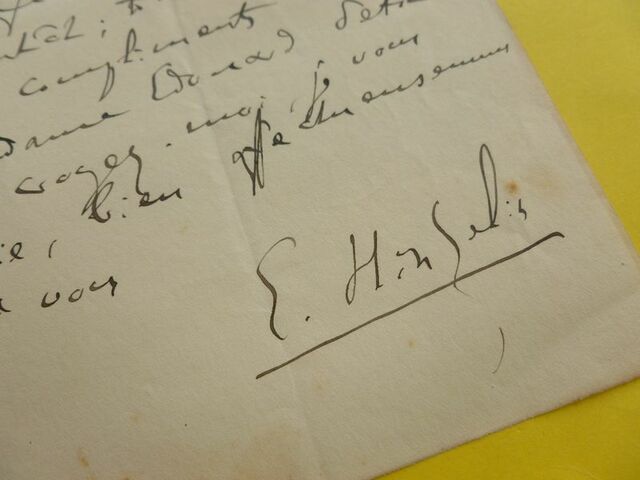 compliments
Madame Edouard Detai
croyez-moi, je vous
bien affectueusement
à vous
E. Hinzelin